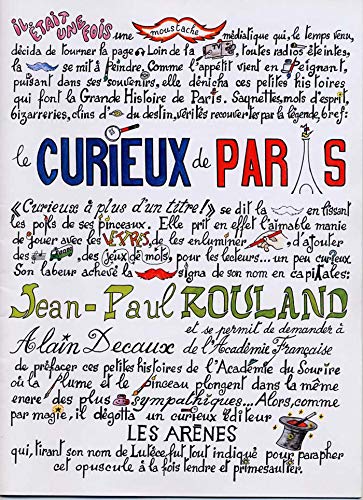 IL ÉTAIT UNE FOIS une moustache médiatique qui, le temps venu,
décida de tourner la page. Loin de la toutes radios éteintes,
la se mit à peindre. Comme l'appétit vient en peignant,
puisant dans ses souvenirs, elle dénicha ces petites histoires
qui font la Grande Histoire de Paris. Saynettes, mots d'esprit,
bizarreries, clins d' du destin, vérités recouvertes par la légende, bref:
le CURIEUX de PARIS
«Curieuse à plus d'un titre!» se dit la en lissant
les poils de ses pinceaux. Elle prit en effet l'aimable manie
de jouer avec les de les enluminer d'ajouter
des , des jeux de mots, pour les lecteurs... un peu curieux.
Son labeur achevé la signa de son nom en capitales:
Jean-Paul ROULAND
et se permit de demander à
Alain Decaux de l'Académie Française
de préfacer ces petites histoires de l'Académie du Sourire
où la plume et le pinceau plongent dans la même
encre des plus sympathiques... Alors, comme
par magie, il dégotta un curieux éditeur
LES ARÈNES
qui, tirant son nom de Lutèce, fut tout indiqué pour parapher
cet opuscule à la fois tendre et primesautier.